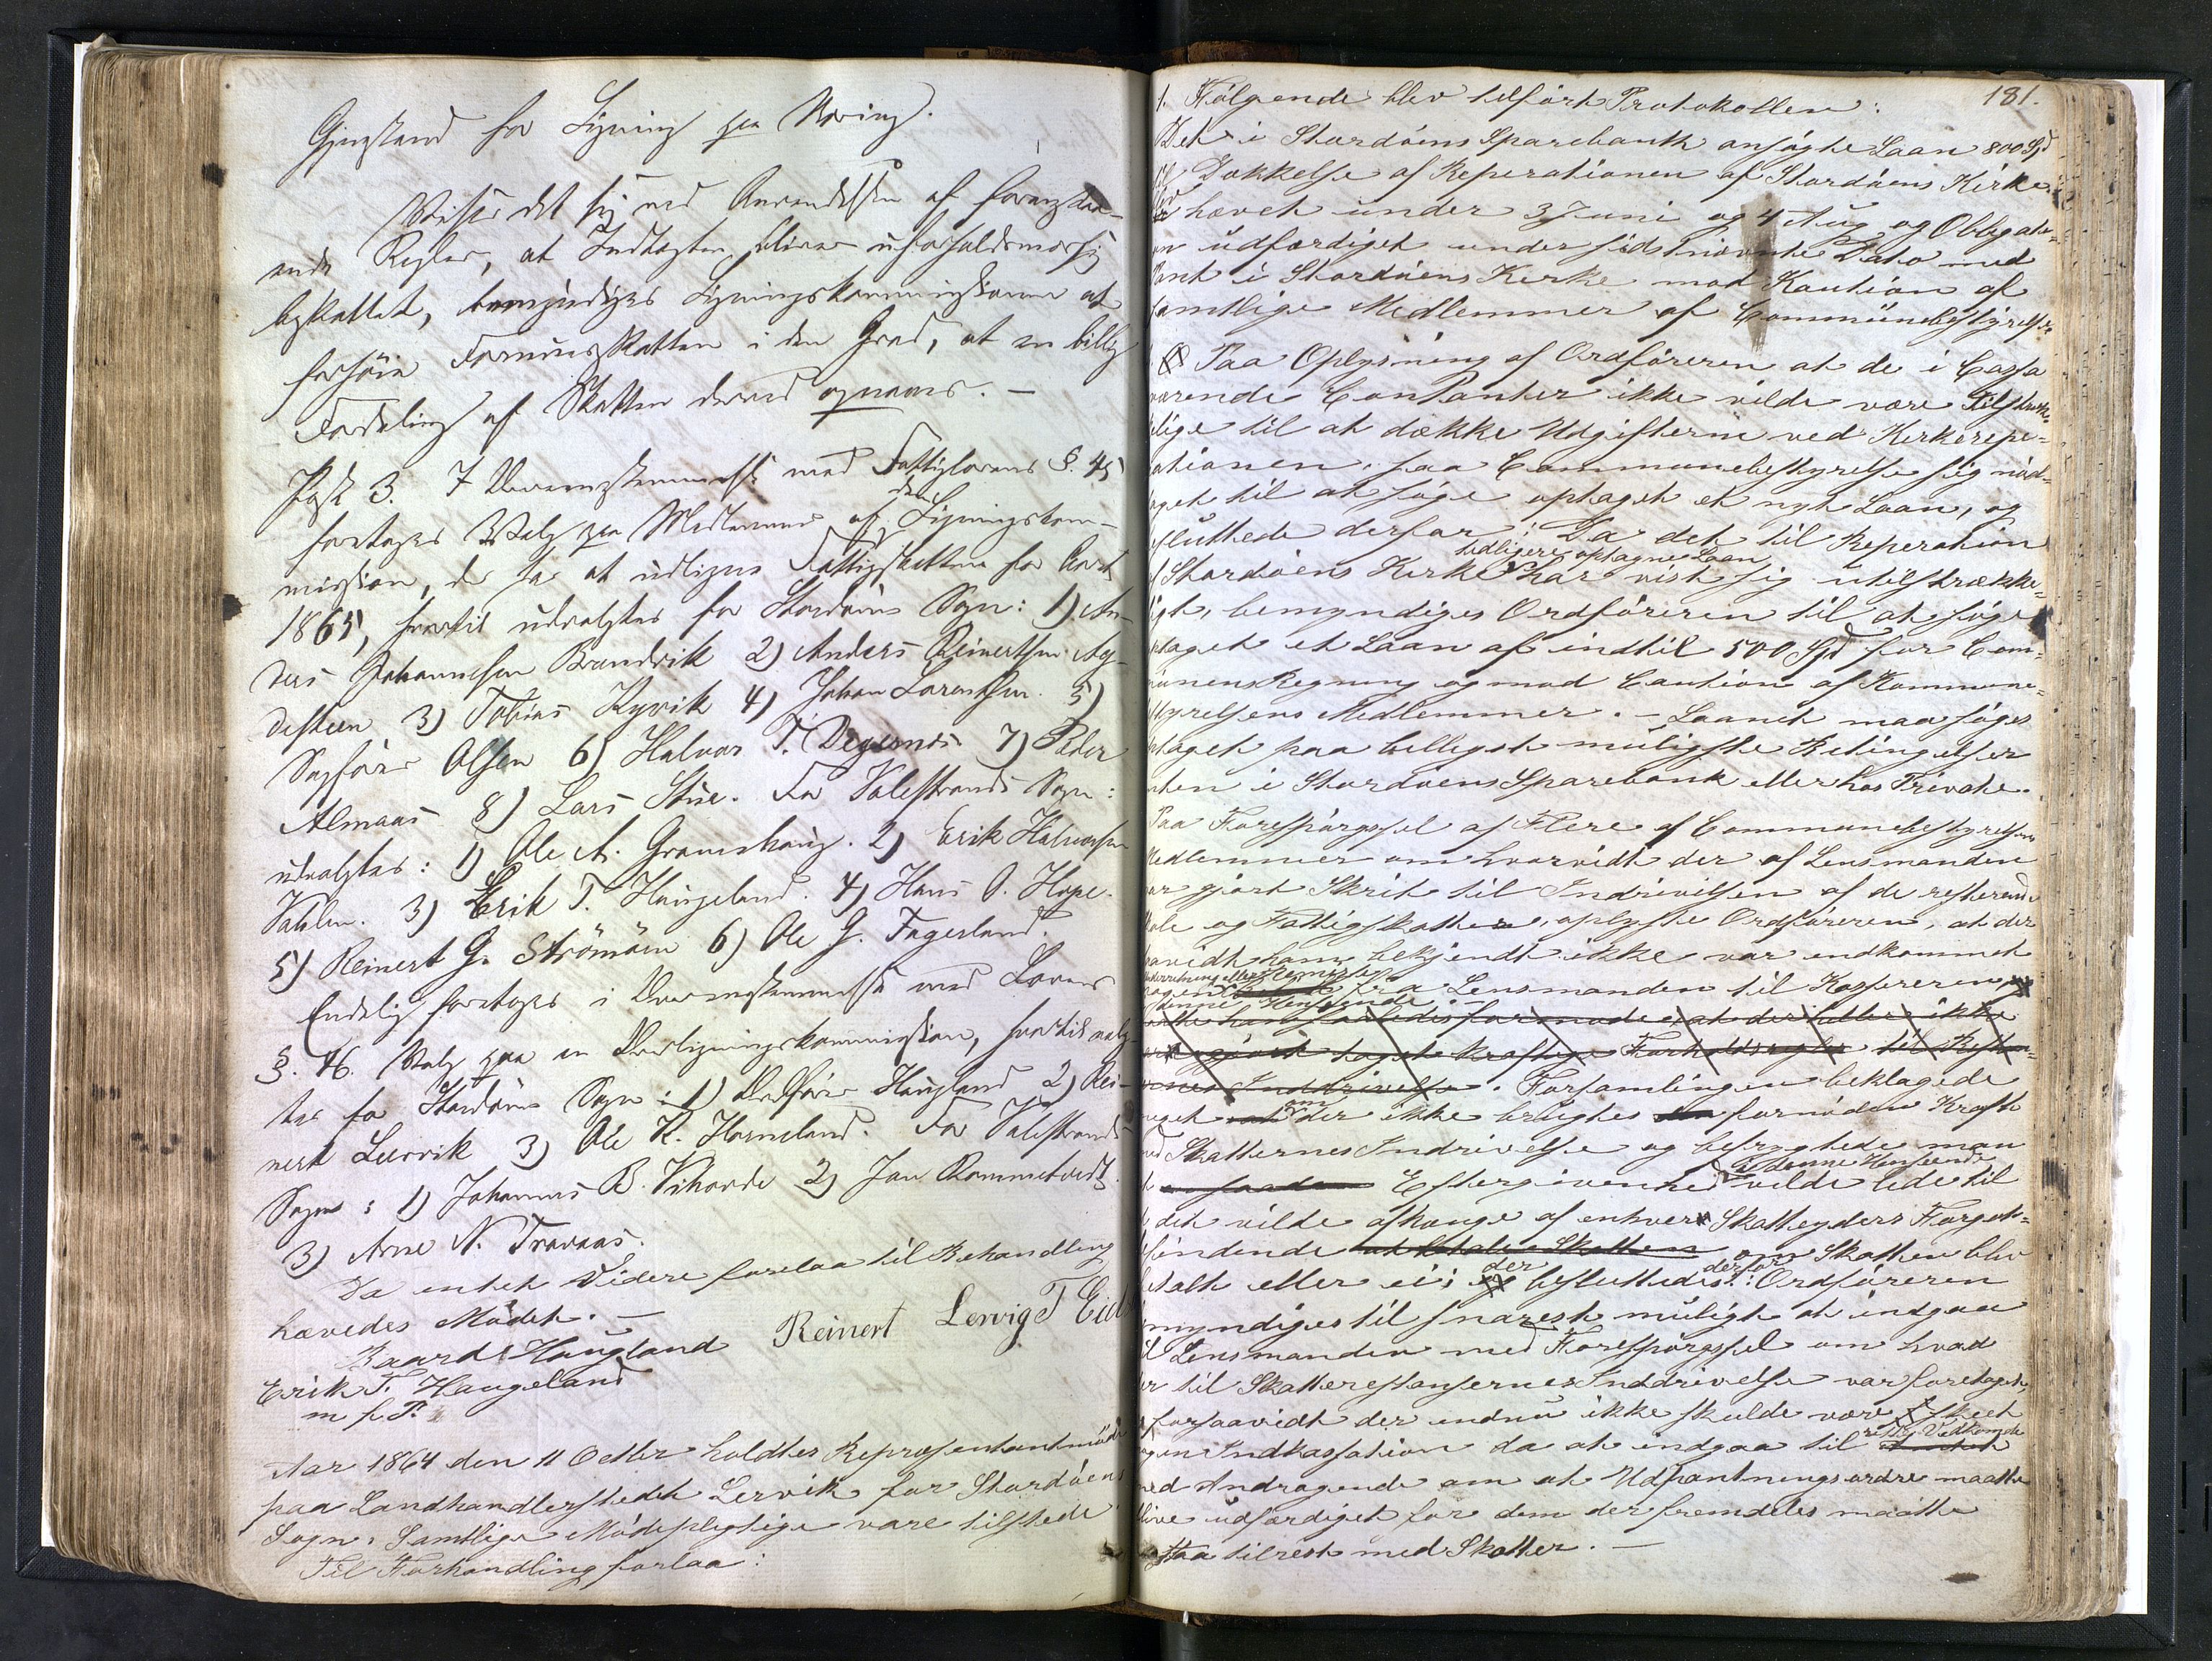 Gjenstand for Ligning paa Næring.
Viser det sig ved Anvendelsen af foranstaa-
ende Regler, at Indtægten bliver uforholdsmæssig
beskattet, bemyndiges Ligningskommissionen at
forhøie Formuesskatten i den Grad, at en billig
Fordeling af Skatten derved opnaaes. —
Post 3. I Overensstemmelse med Fattiglovens §. 45
foretoges Valg paa Medlemmer af den Ligningskom-
mission, der har at udligne Fattigskatten for Aaret
1865, hvortil udvalgtes for Stordøens Sogn: 1) An-
ders Johannesen Brandvik 2) Anders Reinertsen Ag-
desteen 3) Tobias Kyvik 4) Johan Lorentsen. 5)
Sagfører Olsen 6) Halvor T. Digernæs 7) Peder
Almaas 8) Lars Stue. For Valestrands Sogn:
udvalgtes: 1) Ole A. Gramshaug. 2) Erik Halvorsen
Vatslen. 3) Erik T. Haugeland. 4) Hans O. Hope.
5) Reinert G. Strömöen 6) Ole G. Fagerland.
Endelig foretoges i Overensstemmelse med Lovens
§. 46. Valg paa en Overligningskommission, hvortil valg-
tes for Stordøens Sogn: 1) Ordfører Haugland 2) Rei-
nert Lervik 3) Ole K. Horneland. For Valestrands
Sogn: 1) Johannes B. Vihovde 2) Jon Rommetvedt
3) Arne N. Travaas.
Da entet Videre forelaa til Behandling
hævedes Mödet. —
Baard Haugland Reinert Lervig T Eid
Erik T. Haugeland
m f P.
Aar 1864 den 11 Octbr holdtes Repræsentantmöde
paa Landhandlerstedet Lervik for Stordöens
Sogn. Samtlige Mödepligtige vare tilstede.
Til Forhandling forlaa:
181.
1. Fölgende blev tilfört Protokollen:
Det i Stordöens Sparebank ansögte Laan 800 Spd
til Dækkelse af Reperationen af Stordöens Kirke
hævet under 3 Juni og 4 Aug og Obligati=
on udfærdiget under sidstnævnte Dato med
Pant i Stordöens Kirke mod Kaution af
samtlige Medlemmer af Communebestyrelsen
Paa Oplysning af Ordföreren at de i Cassa
værende Contanter ikke vilde være Tilstræk=
kelige til at dække Udgifterne ved Kirkerepe=
rationen, saa Communebestyrelse sig nöd=
saget til at söge optaget et nyt Laan, og
besluttede derfor: Da det til Reperation
af Stordöens Kirke tidligere optagne Laan har vist sig utilstrække=
ligt, bemyndiges Ordföreren til at söge
optaget et Laan af indtil 500 Spd for Com=
munens Regning og mod Caution af Kommune=
styrelsens Medlemmer. — Laanet maa söges
optaget paa billigst muligste Betingelser
enten i Stordöens Sparebank eller hos Private.
Paa Forespörgsel af Flere af Communebestyrelsens
Medlemmer om hvorvidt der af Lensmanden
var gjort Skrit til Indrivelsen af de resterende
Skole og Fattigskatter, oplyste Ordföreren, at der
saavidt ham bekjendt ikke var indkommet
Underretning eller Remisse
nogen fra Lensmanden til Kassereren
i denne Henseende —
Forsamlingen beklagede
meget om der ikke brugtes fornöden Kraft
ved Skatternes Indrivelse og befrygtede man
at Eftergivenhed i denne Henseende vilde lede til
at det vilde afhænge af enhver Skatteyders Forgodt=
befindende om Skatten blev
betalt eller ei; der besluttedes derfor: Ordföreren
bemyndiges til snarest muligt at indgaa
til Lensmanden med Forespörgsel om hvad
der til Skatterestansernes Inddrivelse var foretaget,
forsaavidt der endnu ikke skulde være skeet
nogen Indkassation da at indgaa til rette Vedkomde
med Andragende om at Udpantningsordre maatte
blive udfærdiget for dem der fremdeles maatte
staa tilrest med Skatter. —